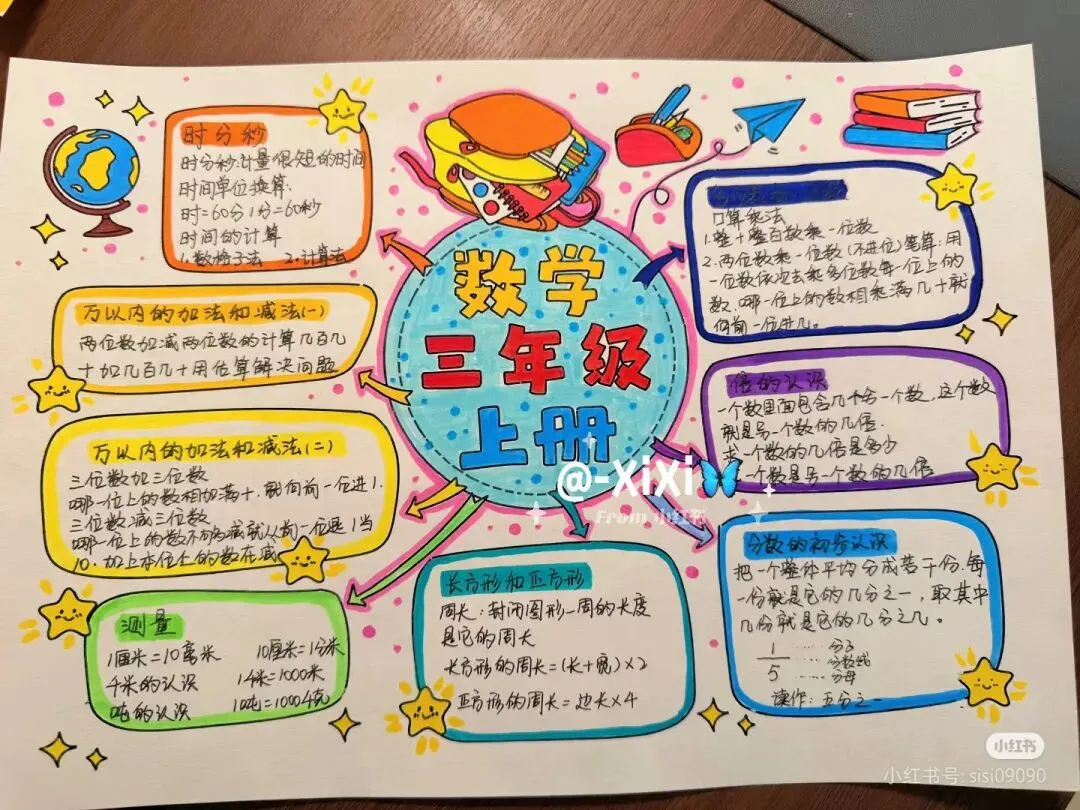 时分秒
时分秒计量很短的时间
时间单位换算:
时=60分 1分=60秒
时间的计算
1.数格子法 2.计算法
万以内的加法和减法(一)
两位数加减两位数的计算几百几
十加几百几十用估算解决问题
万以内的加法和减法(二)
三位数加三位数
哪一位上的数相加满十,就向前一位进1.
三位数减三位数
哪一位上的数不够减就从前一位退1当
10.加上本位上的数在减
测量
1厘米=10毫米 10厘米=1分米
千米的认识 1千米=1000米
吨的认识 1吨=1000千克
数学
三年级
上册
@-XiXi
From 小红书
长方形和正方形
周长:封闭图形一周的长度
是它的周长
长方形的周长=(长+宽)×2
正方形的周长=边长×4
口算乘法
1.整十整百数乘一位数
2.两位数乘一位数(不进位)笔算:用
一位数依次去乘多位数每一位上的
数.哪一位上的数相乘满几十就
向前一位进几。
倍的认识
一个数里面包含几个另一个数,这个数
就是另一个数的几倍.
求一个数的几倍是多少
一个数是另一个数的几倍
分数的初步认识
把一个整体平均分成若干份.每
一份就是它的几分之一,取其中
几份就是它的几分之几。
1 …… 分子
— …… 分数线
5 …… 分母
读作:五分之一
小红书
小红书号: sisi09090